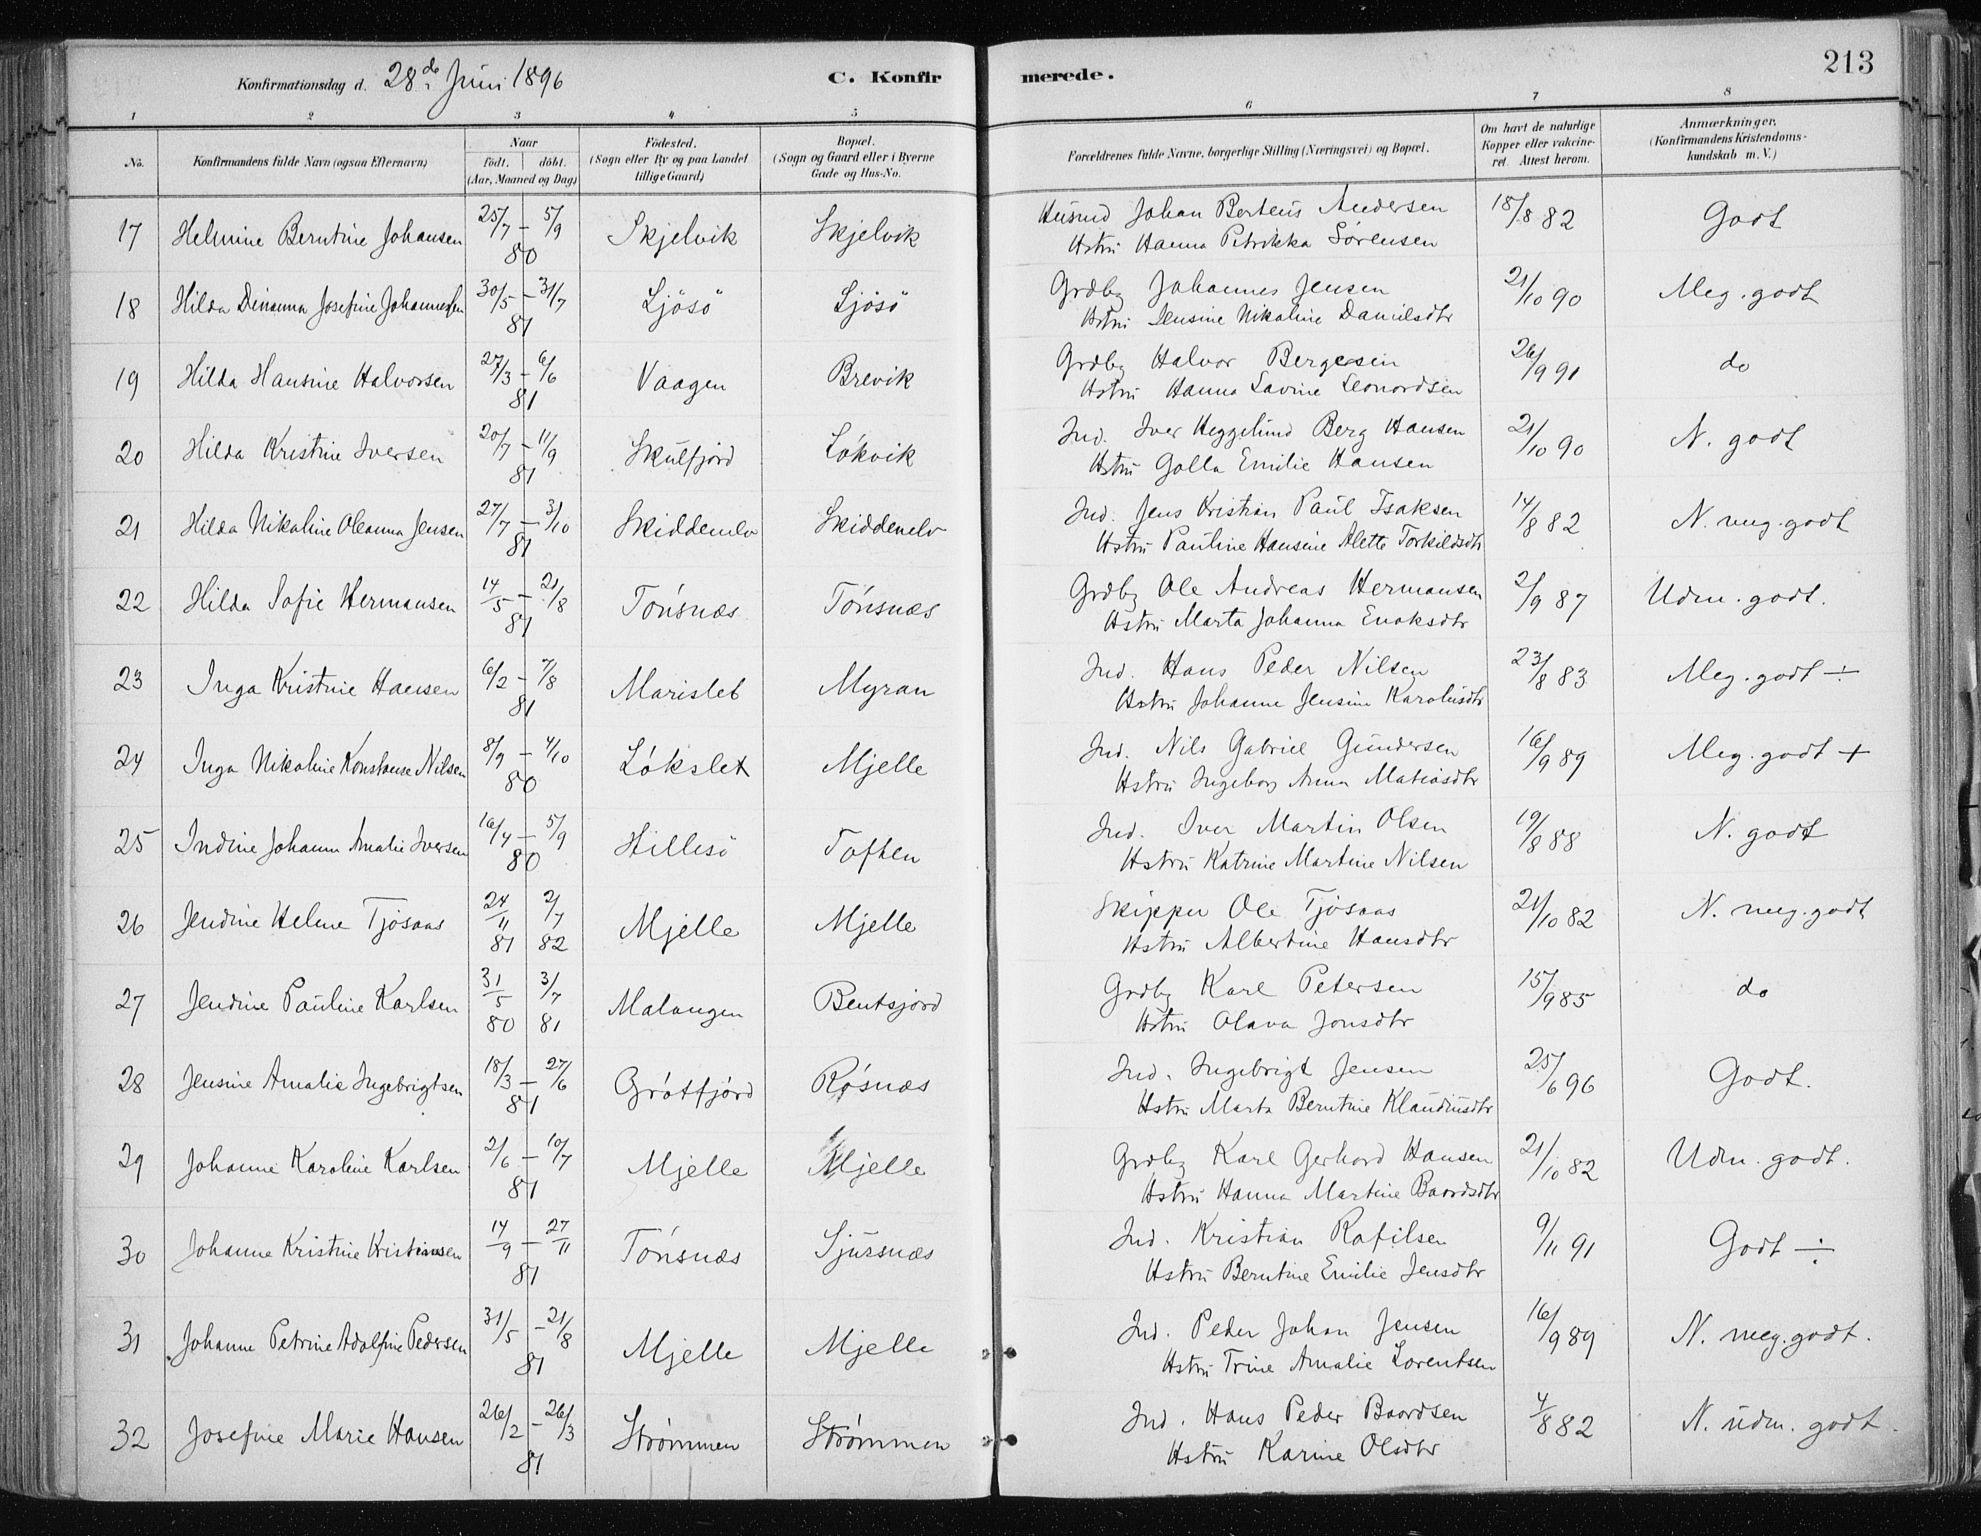 213
Konfirmationsdag d. 28de Juni 1896 C. Konfirmerede.
1 2 3 4 5 6 7 8
No. Konfirmandens fulde Navn (ogsaa Efternavn) Naar födt. döbt. (Aar, Maaned og Dag) Födested. (Sogn eller By og paa Landet tillige Gaard) Bopæl. (Sogn og Gaard eller i Byerne Gade og Hus-No. Forældrenes fulde Navne, borgerlige Stilling (Næringsvei) og Bopæl. Om havt de naturlige Kopper eller vakcineret. Attest herom. Anmærkninger. (Konfirmandens Kristendomskundskab m. V.)
17 Helmine Berntine Johansen 25/7 – 5/9 80 Skjelvik Skjelvik Husmd Johan Berteus Andersen 18/8 82 Godt
Hstru Hanna Petrikka Sørensen
18 Hilda Dinanna Josefine Johannessen 30/5 – 31/7 81 Ljösö Ljösö Grdby Johannes Jensen 21/10 90 Meg. godt
Hstru Jensine Nikoline Danielsdtr
19 Hilda Hansine Halvorsen 27/3 – 6/6 81 Vaagen Brevik Grdby Halvor Bergesen 26/9 91 do
Hstru Hanna Lavine Leonordsen
20 Hilda Kristine Iversen 20/7 – 11/9 81 Skulfjord Løkvik Ind. Iver Heggelund Berg Hansen 21/10 90 N. godt
Hstru Golla Emilie Hansen
21 Hilda Nikoline Oleanna Jensen 27/7 – 3/10 81 Skiddenelv Skiddenelv Ind. Jens Kristian Paul Isaksen 14/8 82 N. meg. godt
Hstru Pauline Hansine Alette Torkildsdtr
22 Hilda Sofie Hermansen 14/5 – 21/8 81 Tönsnæs Tönsnæs Grdby Ole Andreas Hermansen 2/9 87 Udm. godt.
Hstru Marta Johanna Enoksdtr
23 Inga Kristine Hansen 6/2 – 7/8 81 Marislet Myran Ind. Hans Peder Nilsen 23/8 83 Meg. godt ÷
Hstru Johanne Jensine Karolusdtr
24 Inga Nikoline Konstanse Nilsen 8/9 – 4/10 80 Løkslet Mjelle Ind. Nils Gabriel Gundersen 16/9 89 Meg. godt +
Hstru Ingeborg Anna Matiasdtr
25 Indine Johann Amalie Iversen 16/4 – 5/9 80 Hillesö Toften Ind. Iver Martin Olsen 19/8 88 N. godt
Hstru Katrine Martine Nilsen
26 Jendine Helene Tjösaas 24/11 81 2/7 82 Mjelle Mjelle Skipper Ole Tjösaas 21/10 82 N. meg. godt
Hstru Albertine Hansdtr
27 Jendine Pauline Karlsen 31/5 80 3/7 81 Malangen Bentsjord Grdby Karl Petersen 15/9 85 do
Hstru Olava Jonsdtr
28 Jensine Amalie Ingebrigtsen 18/3 – 27/6 81 Grøtfjord Røsnæs Ind. Ingebrigt Jensen 25/6 96 Godt.
Hstru Marta Berntine Klaudiusdtr
29 Johanne Karoline Karlsen 2/6 – 10/7 81 Mjelle Mjelle Grdby Karl Gerhard Hansen 21/10 82 Udm. godt.
Hstru Hanna Martine Baardsdtr
30 Johanne Kristine Kristiansen 14/9 – 27/11 81 Tönsnæs Sjursnæs Ind. Kristian Rafilsen 9/11 91 Godt ÷
Hstru Berntine Emilie Jensdtr
31 Johanne Petrine Adolfine Pedersen 31/5 – 21/8 81 Mjelle Mjelle Ind. Peder Johan Jensen 16/9 89 N. meg. godt.
Hstru Trine Amalie Lorentsen
32 Josefine Marie Hansen 26/2 – 26/3 81 Strømmen Strømmen Ind. Hans Peder Baardsen 4/8 82 N. udm. godt.
Hstru Karine Olsdtr